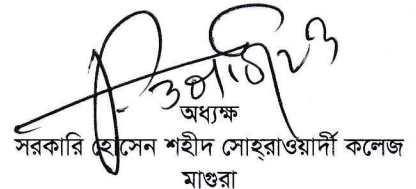 অধ্যক্ষ
সরকারি হোসেন শহীদ সোহ্‌রাওয়ার্দী কলেজ
মাগুরা